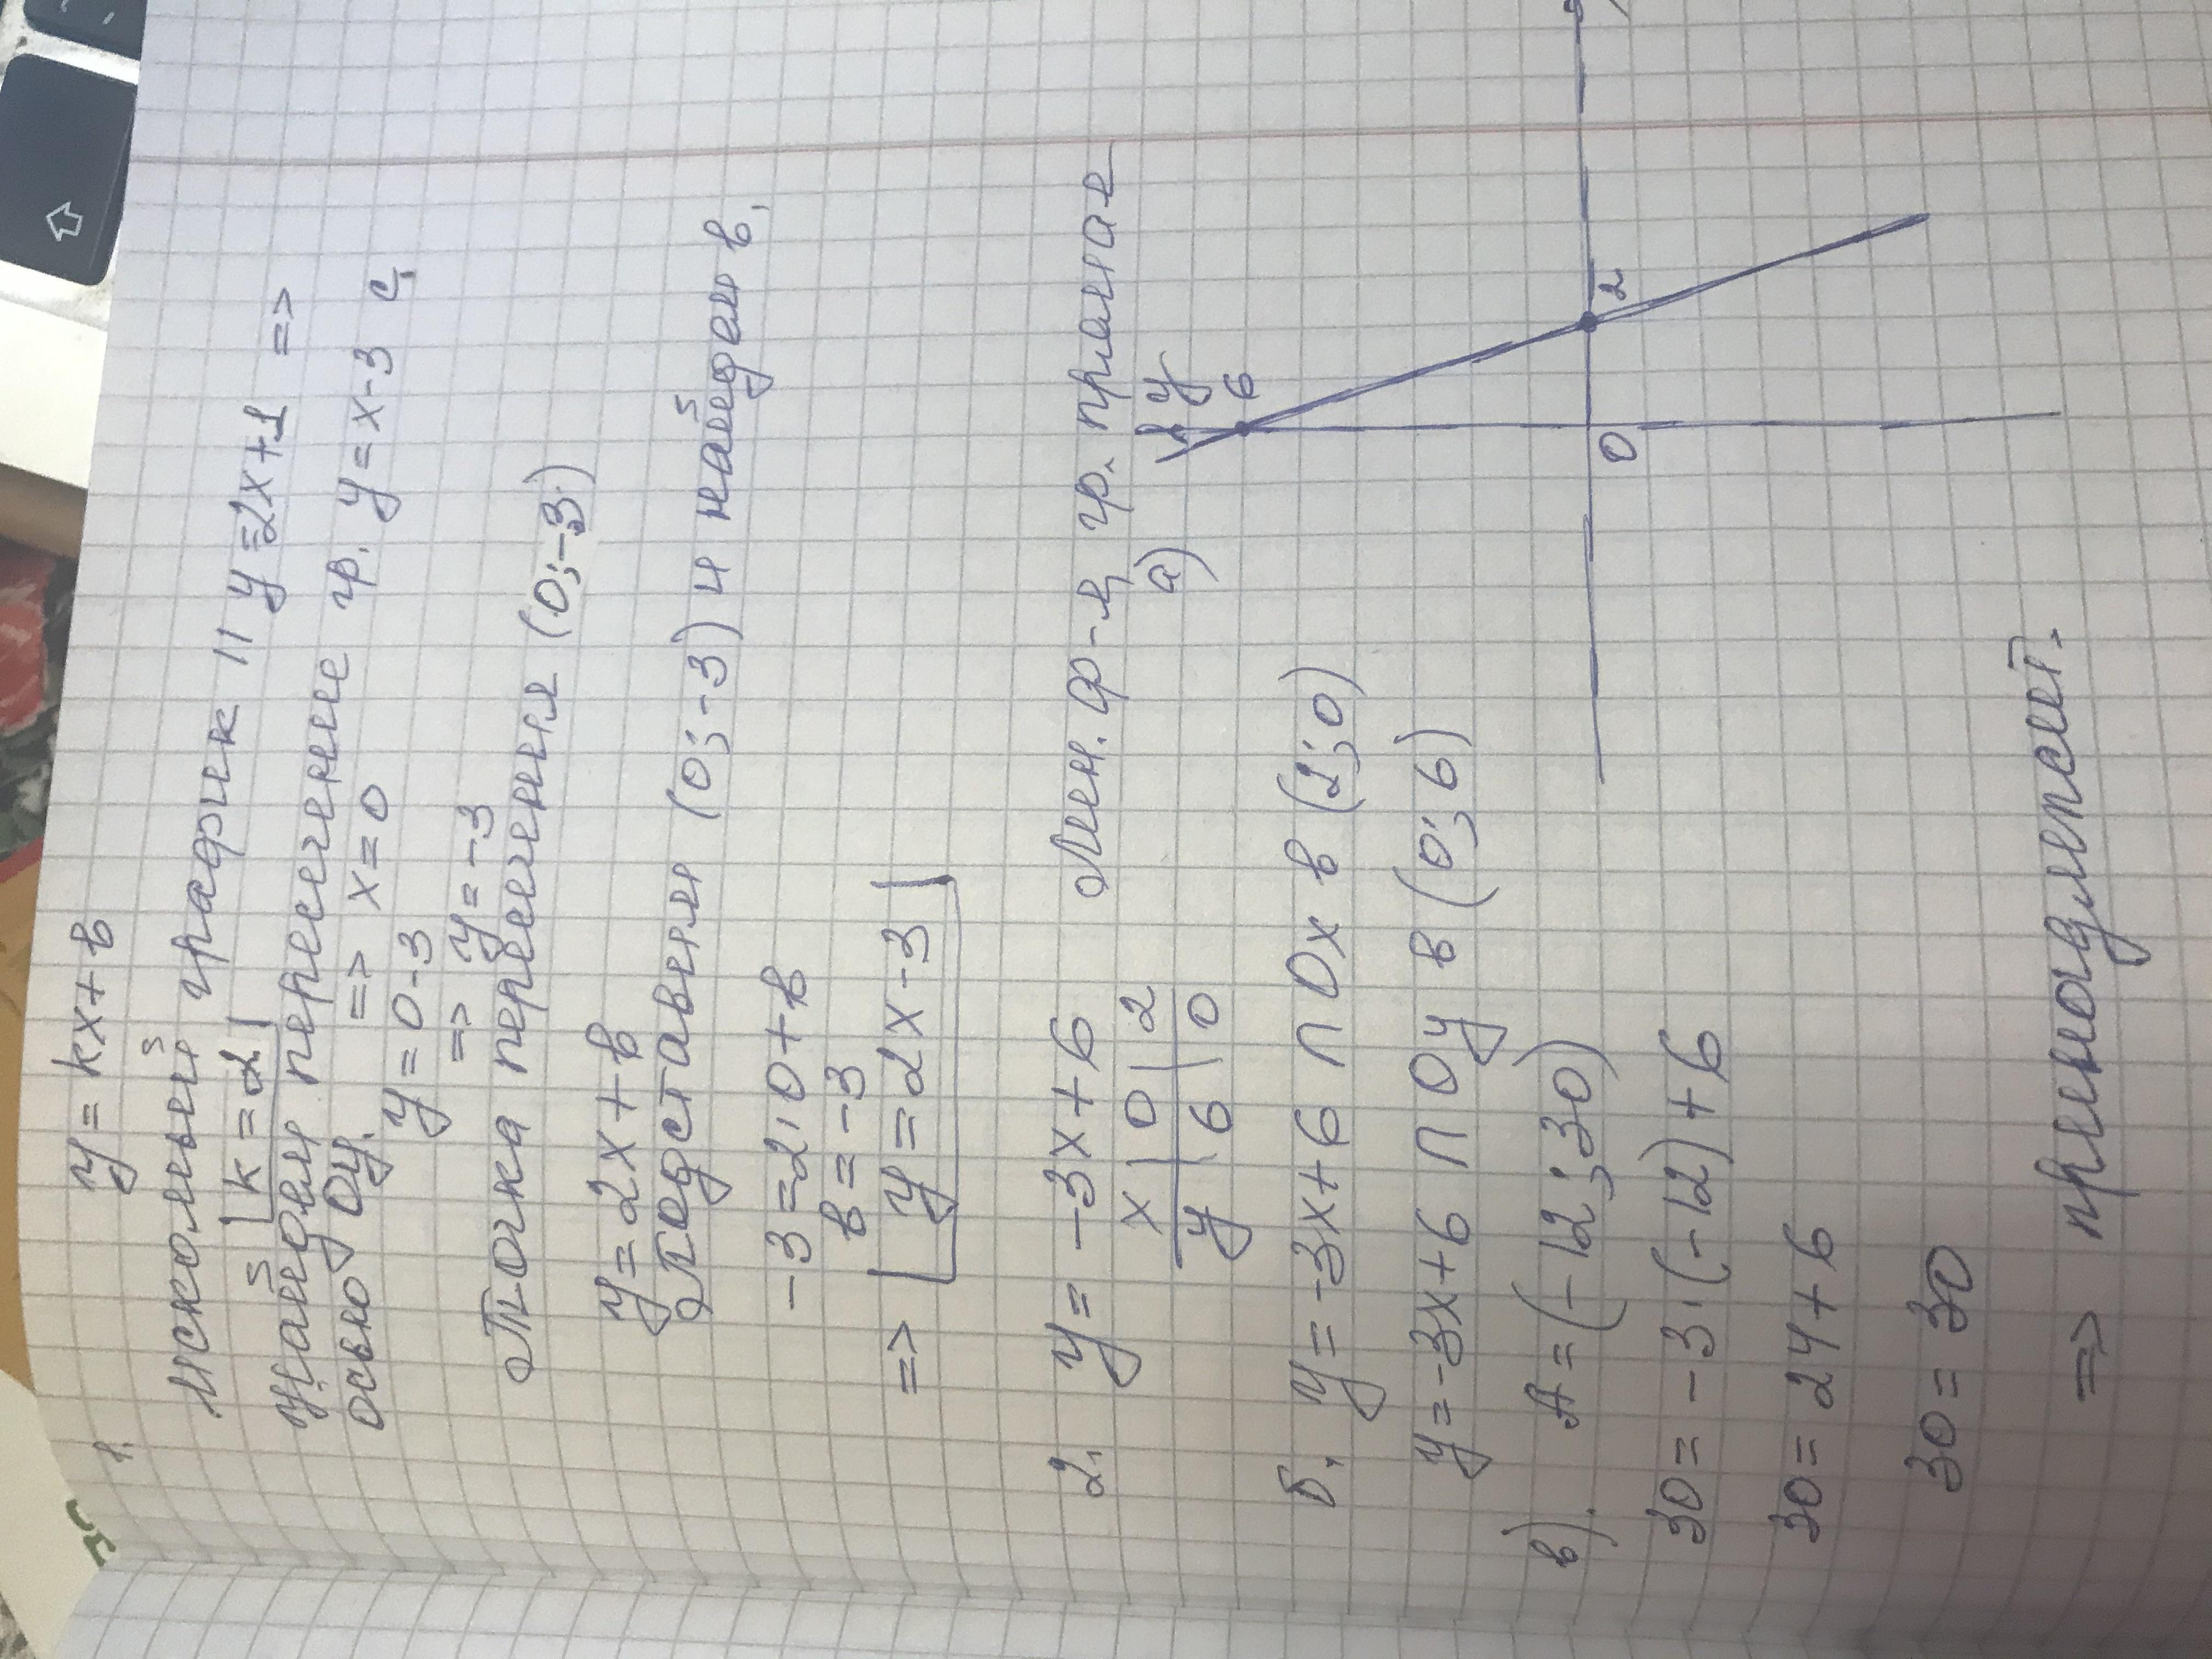 1. y = kx + b
искомый график || y = 2x+1 =>
k = 2
Найдём пересечение гр. y = x-3 с
осью Oy. => x = 0
y = 0-3
=> y = -3
Точка пересечения (0;-3)
y = 2x + b
Подставим (0;-3) и найдем b.
-3 = 2·0+b
b = -3
=> y = 2x-3
2. y = -3x+6 Лин. ф-я, гр. прямая
x 0 2
y 6 0
а)
y
6
0
2
б. y = -3x+6 ∩ Ox в (2;0)
y = -3x+6 ∩ Oy в (0;6)
в). A = (-12;30)
30 = -3·(-12)+6
30 = 24+6
30 = 30
=> принадлежит.